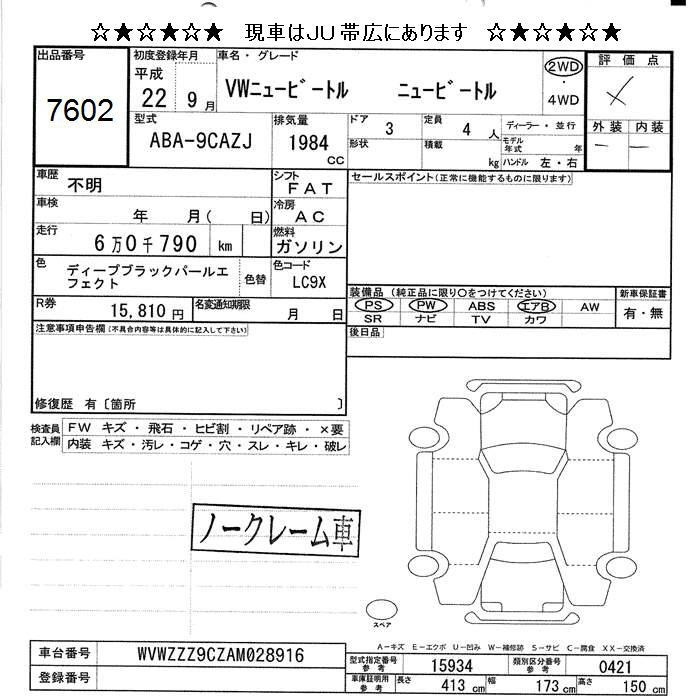 ☆★☆★☆★ 現車はJU帯広にあります ☆★☆★☆★
出品番号 7602
初度登録年月 平成 22 9月
車名・グレード VWニュービートル ニュービートル
2WD・4WD
評価点
外装 内装
― ―
型式 ABA-9CAZJ
排気量 1984 CC
ドア 3
形状
定員 4 人
積載 kg
ディーラー・並行
モデル年式 年
ハンドル 左・右
車歴 不明
シフト FAT
セールスポイント(正常に機能するものに限ります)
車検 年 月( 日)
冷房 AC
走行 6万0千790 km
燃料 ガソリン
色 ディープブラックパールエフェクト
色替
色コード LC9X
装備品(純正品に限り〇をつけてください)
PS PW ABS エアB AW
SR ナビ TV カワ
新車保証書 有・無
R券 15,810円
名変通知期限 月 日
後日品
注意事項申告欄(不具合内容等は具体的に記入して下さい)
修復歴 有〔箇所 〕
検査員記入欄
FW キズ・飛石・ヒビ割・リペア跡・×要
内装 キズ・汚レ・コゲ・穴・スレ・キレ・破レ
ノークレーム車
スペア
A-キズ E-エクボ U-凹み W-補修跡 S-サビ C-腐食 XX-交換済
車台番号 WVWZZZ9CZAM028916
登録番号
型式指定番号 参考 15934
類別区分番号 参考 0421
車庫証明用 参考 長さ 413 cm 幅 173 cm 高さ 150 cm